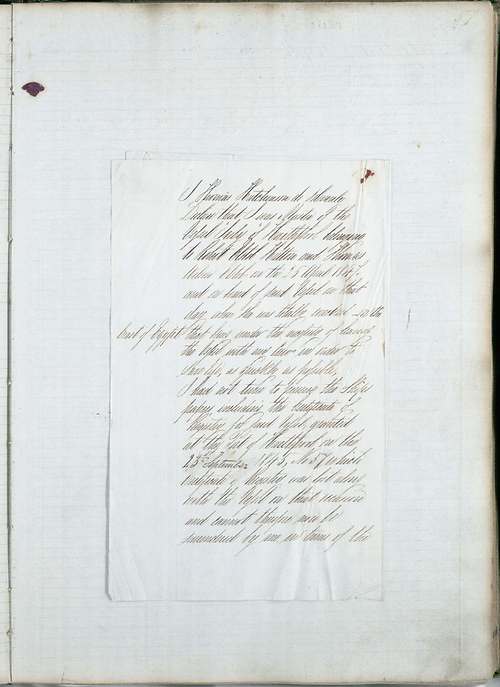 I Thomas Hutchinson do solemnly
Declare that I was Master of the
Vessel Lady of Hartlepool belonging
to Robert Reid and Thomas
on the 28 April 1847,
and on board of said Vessel on that
day, when she was totally wrecked – on the
Coast of Egypt that being under the necessity of leaving
the Vessel with my Crew in order to
Save life, as quickly as possible,
I had not time to secure the Ships
papers including the Certificate of
Registry for said Vessel, granted
at the Port of Hartlepool on the
23rd September 1845, No 57 which
Certificate of Register was lost along
with the Vessel on that occasion
and cannot therefore now be
surrendered by me in terms of the